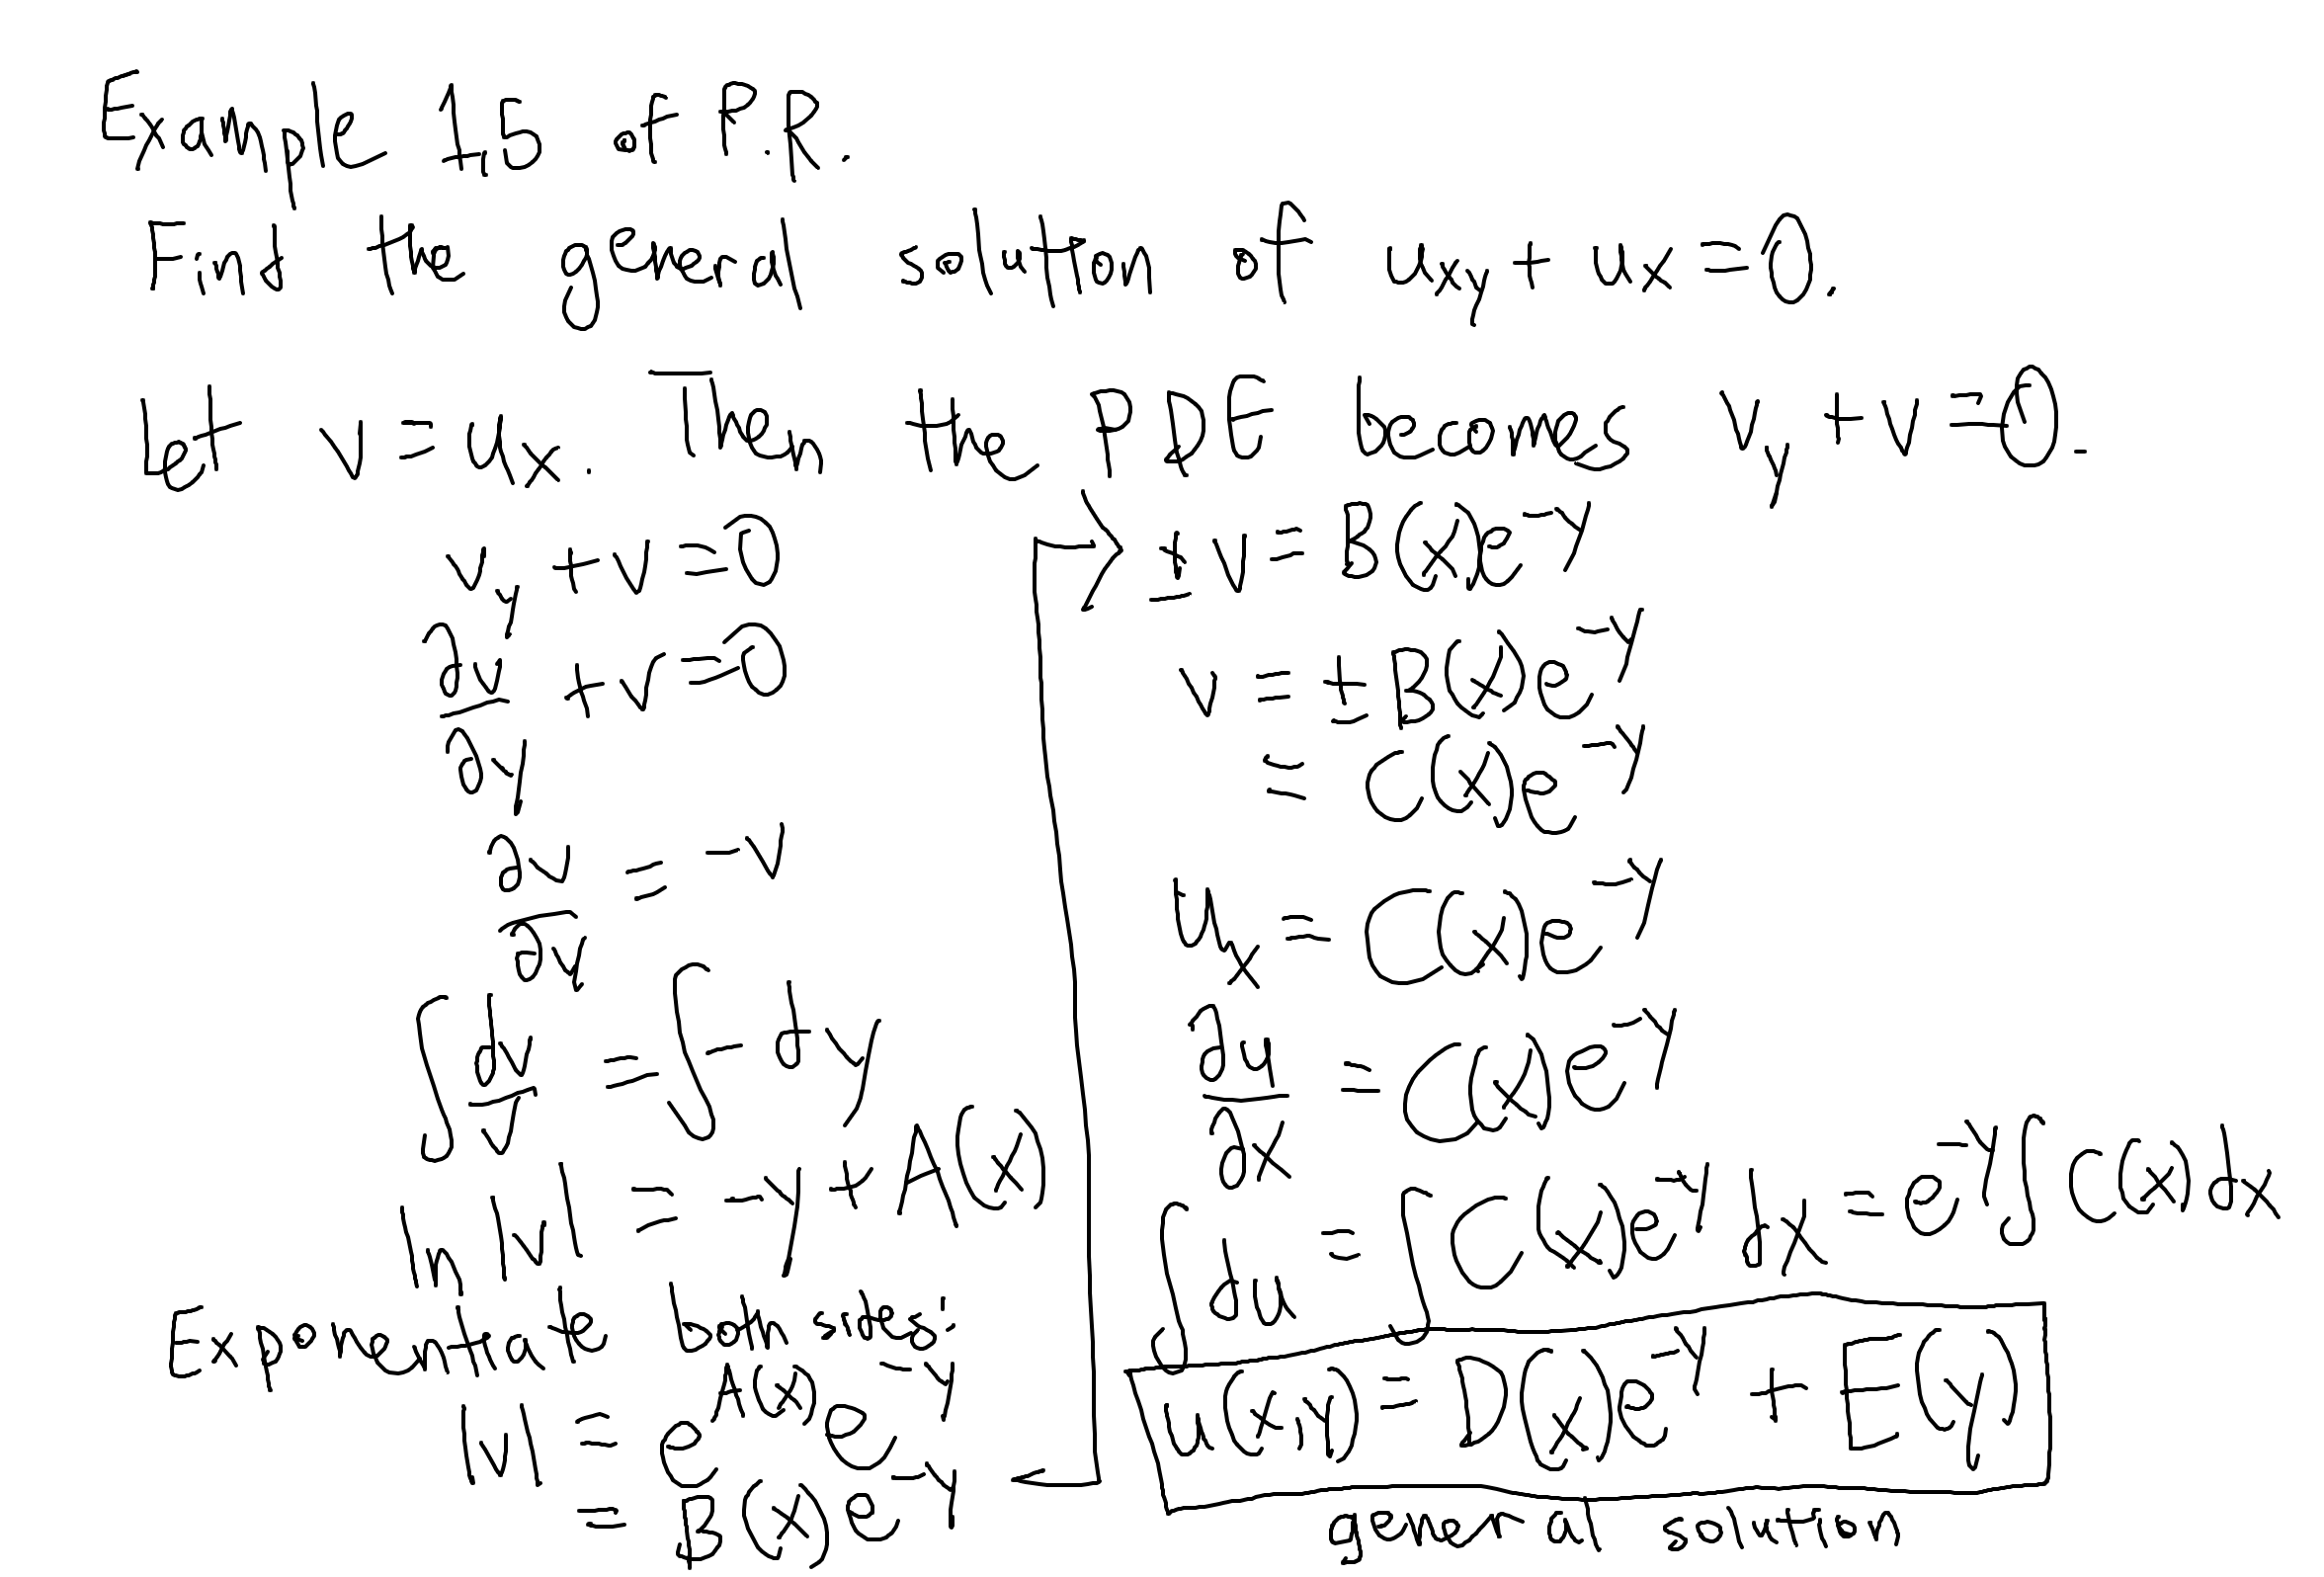 Example 1.5 of P.R.
Find the general solution of u_xy + u_x = 0.
Let v = u_x. Then the PDE becomes v_y + v = 0.
v_y + v = 0
∂v/∂y + v = 0
∂v/∂y = -v
∫ dv/v = ∫ - dy
ln |v| = -y + A(x)
Exponentiate both sides:
|v| = e^A(x) e^-y
= B(x)e^-y
± v = B(x)e^-y
v = ± B(x)e^-y
= C(x)e^-y
u_x = C(x)e^-y
∂u/∂x = C(x)e^-y
∫ du = ∫ C(x)e^-y dx = e^-y ∫ C(x) dx
u(x,y) = D(x)e^-y + E(y)
general solution